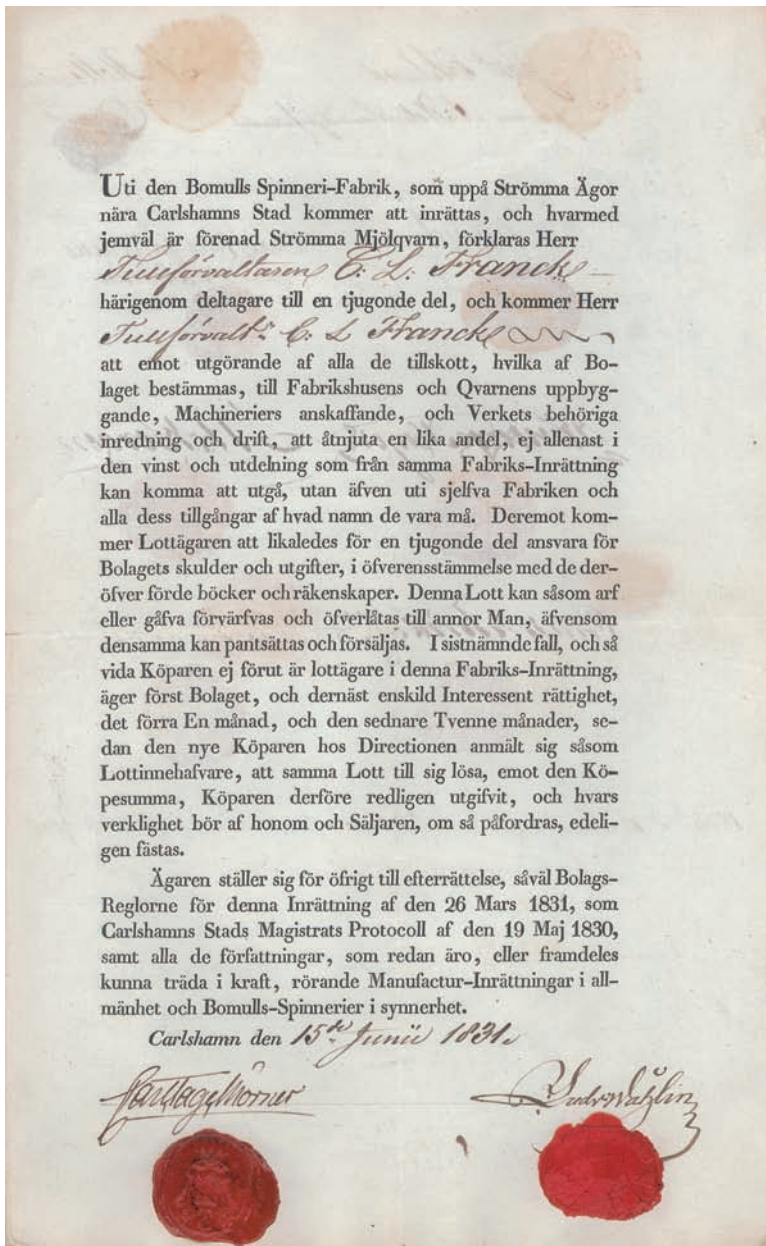 Uti den Bomulls Spinneri-Fabrik, som uppå Strömma Ägor
nära Carlshamns Stad kommer att inrättas, och hvarmed
jemväl är förenad Strömma Mjölqvarn, förklaras Herr
Tullförvaltaren C: L: Franck
härigenom deltagare till en tjugonde del, och kommer Herr
Tullförvalt: C. L Franck
att emot utgörande af alla de tillskott, hvilka af Bo-
laget bestämmas, till Fabrikshusens och Qvarnens uppbyg-
gande, Machineriers anskaffande, och Verkets behöriga
inredning och drift, att åtnjuta en lika andel, ej allenast i
den vinst och utdelning som från samma Fabriks-Inrättning
kan komma att utgå, utan äfven uti sjelfva Fabriken och
alla dess tillgångar af hvad namn de vara må. Deremot kom-
mer Lottägaren att likaledes för en tjugonde del ansvara för
Bolagets skulder och utgifter, i öfverensstämmelse med de der-
öfver förde böcker och räkenskaper. Denna Lott kan såsom arf
eller gåfva förvärfvas och öfverlåtas till annor Man, äfvensom
densamma kan pantsättas och försäljas. I sistnämnde fall, och så
vida Köparen ej förut är lottägare i denna Fabriks-Inrättning,
äger först Bolaget, och dernäst enskild Interessent rättighet,
det förra En månad, och den sednare Tvenne månader, se-
dan den nye Köparen hos Directionen anmält sig såsom
Lottinnehafvare, att samma Lott till sig lösa, emot den Kö-
pesumma, Köparen derföre redligen utgifvit, och hvars
verklighet bör af honom och Säljaren, om så påfordras, edeli-
gen fästas.
Ägaren ställer sig för öfrigt till efterrättelse, såväl Bolags-
Reglorne för denna Inrättning af den 26 Mars 1831, som
Carlshamns Stads Magistrats Protocoll af den 19 Maj 1830,
samt alla de författningar, som redan äro, eller framdeles
kunna träda i kraft, rörande Manufactur-Inrättningar i all-
mänhet och Bomulls-Spinnerier i synnerhet.
Carlshamn den 15de Junii 1831.
Carl Tage Mörner